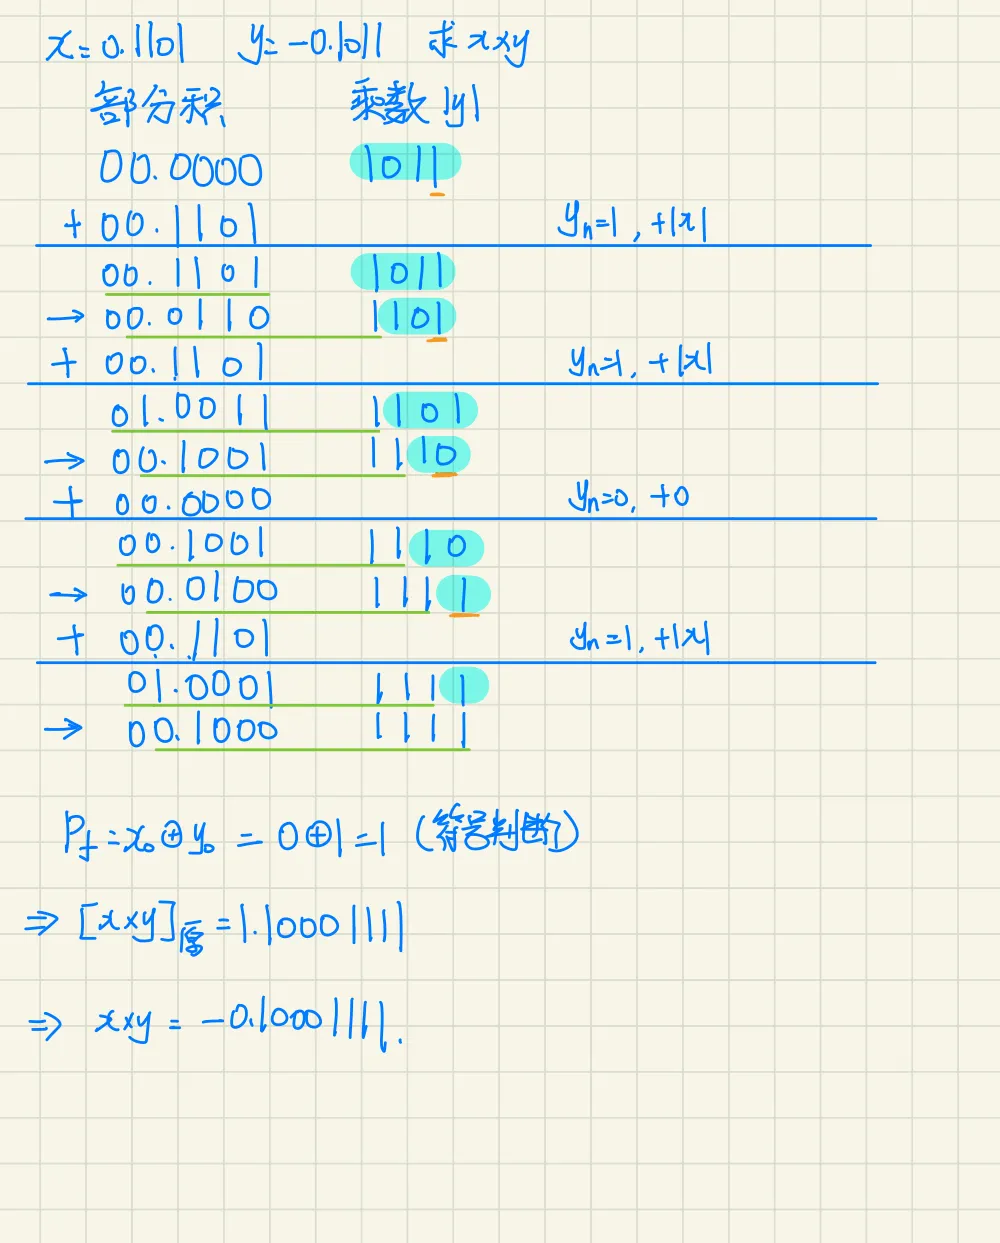 x=0.1101 y=-0.1011 求x×y
部分积 乘数|y|
00.0000 1011
+ 00.1101 yₙ=1, +|x|
00.1101 1011
→ 00.0110 1101
+ 00.1101 yₙ=1, +|x|
01.0011 1101
→ 00.1001 1110
+ 00.0000 yₙ=0, +0
00.1001 1110
→ 00.0100 1111
+ 00.1101 yₙ=1, +|x|
01.0001 1111
→ 00.1000 1111
P_f=x₀⊕y₀=0⊕1=1 (符号判断)
⇒ [x×y]原=1.10001111
⇒ x×y=-0.10001111.